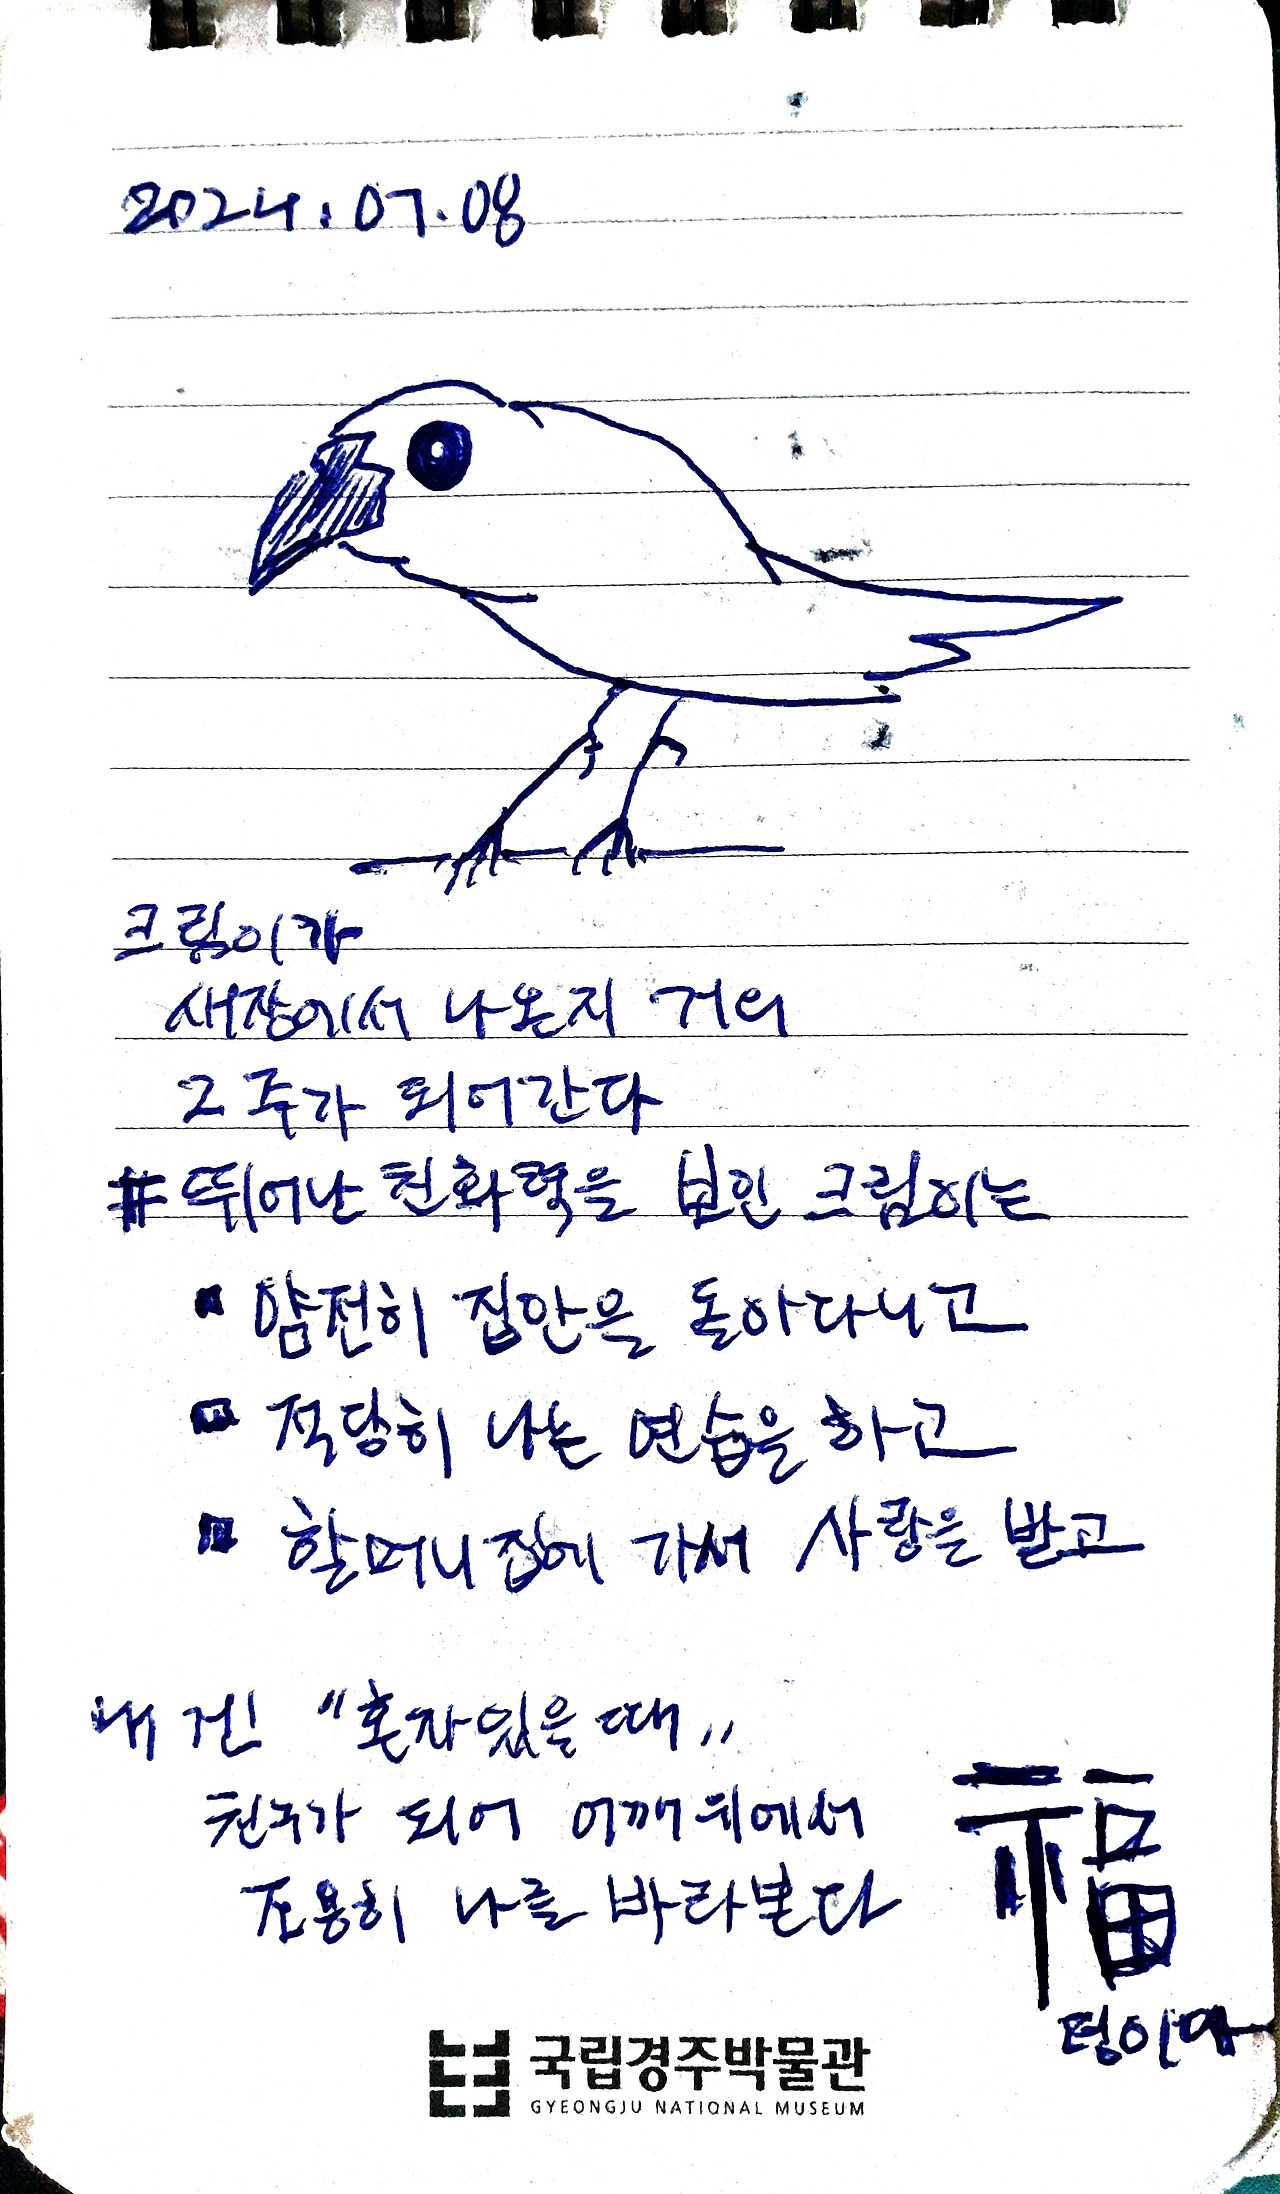 2024.07.08
크림이가
새장에서 나온지 거의
2주가 되어간다
# 뛰어난 친화력을 보인 크림이는
▪ 얌전히 집안을 돌아다니고
▪ 적당히 나는 연습을 하고
▪ 할머니집에 가서 사랑을 받고
내겐 "혼자있을때"
친구가 되어 어깨위에서
조용히 나를 바라본다
福
국립경주박물관
GYEONGJU NATIONAL MUSEUM